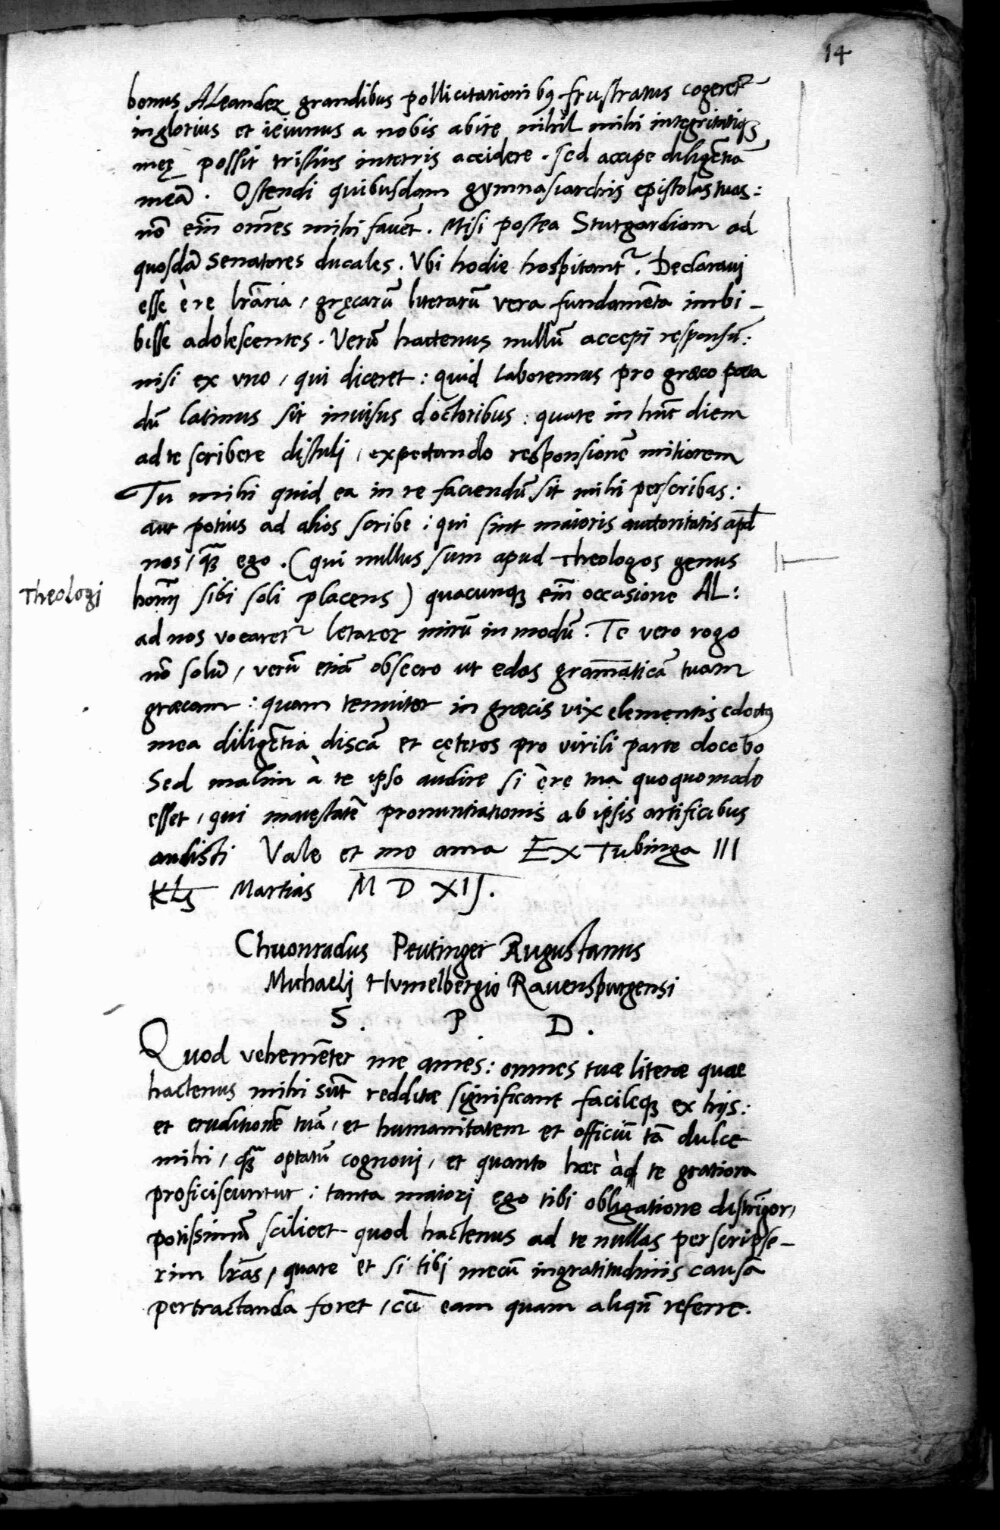 14
bonus ALeander grandibus pollicitationibꝫ frustratus cogeret᷑
inglorius et ieiunus a nobis abire, nihil mihi integritatiqꝫ
meę possit tristius interris accidere. sed accipe diligẽtiã
meã. Ostendi quibusdam gymnasiarchis epistolas tuas:
nõ eñi om̃es mihi favẽt. Misi postea Stutgardiam ad
quosdã Senatores ducales. Vbi hodie hospitant᷑. Declaravi
esse è re lr̃aria, gręcarũ literarũ vera fundamẽta imbi-
bisse adolescentes. Verũ hactenus nullũ accepi respõsũ:
nisi ex vno, qui diceret: quid laboremus pro græco poeta
dũ latinus sit invisus doctoribus: quare in hũc diem
ad te scribere distuli, expectando responsionẽ mitiorem
Tu mihi quid ea in re faciendũ sit mihi perscribas:
aut potius ad alios scribe: qui sint maioris autoritatis apd̃
nos, quã ego. (qui nullus sum apud Theologos genus
Theologi
hom̃i sibi soli placens) quacunqꝫ eñi occasione AL:
ad nos vocaret᷑ letarer mirũ in modũ. Te vero rogo
nõ solũ, verũ etiã obsecro ut edas gram̃aticã tuam
græcam: quam tenuiter in græcis vix elementis edoctꝰ
mea diligẽtia discã et cęteros pro virili parte docebo
Sed malim à te ipso audire si è re tua quoquomodo
esset, qui maiestatẽ pronuntiationis ab ipsis artificibus
audisti Vale et me ama Ex Tubinga III
Kls Martias M D XIJ.
Chuonradus Peutinger Augustanus
Michaeli Humelbergio Ravenspurgensi
S. P D.
Quod vehemẽter me ames: omnes tuæ literæ quae
hactenus mihi sũt redditæ significant facileqꝫ ex hijs:
et eruditionẽ tuã, et humanitatem et officiũ tã dulce
mihi, quã optatũ cognovi, et quanto hæc ad te gratiora
proficiscuntur: tanta maiori ego tibi obligatione distrĩgor,
potissimũ scilicet quod hactenus ad te nullas perscripse-
rim lr̃as, quare et si tibi mecũ ingratitudinis causã
pertractanda foret, cũ eam quam aliqñ referre.